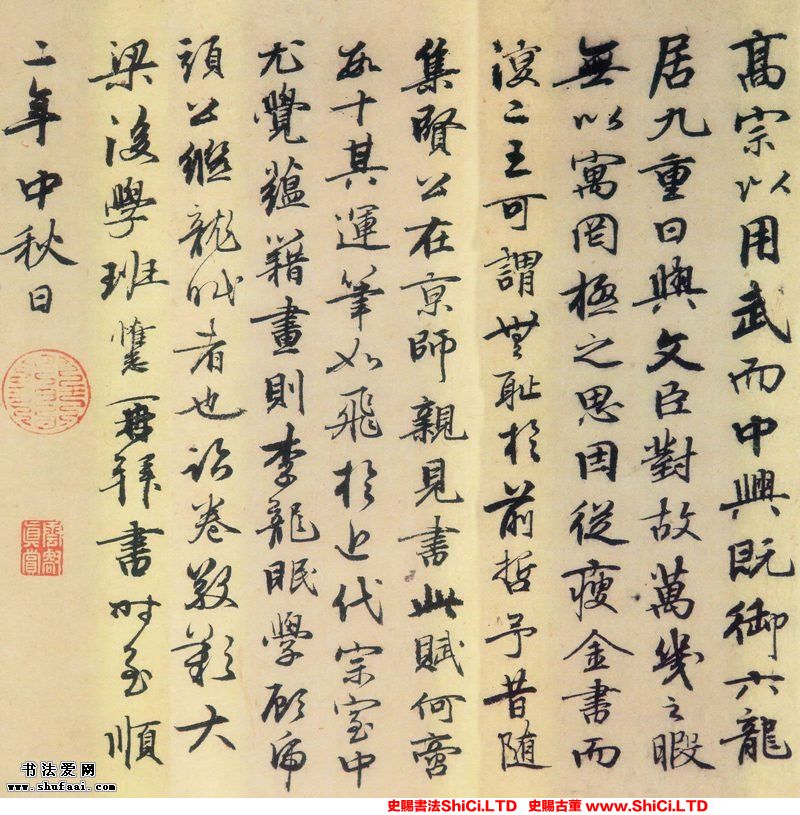 高宗以用武而中興既御六龍
居九重日與文臣對故萬幾之暇
無以寓罔極之思因從瘦金書而
復二王可謂無耻於前哲予昔随
集賢公在京師親見書此賦何啻
數十其運筆如飛於近代宗室中
尤覺蘊籍畫則李龍眠學顧虎
頭公繼龍眠者也詺卷敬歎大
梁後學班惟再拜書時至順
二年中秋日
雲客
真賞
书法爱网
www.shufaai.com
史賜書法ShiCi.LTD 史賜古董 www.ShiCi.LTD